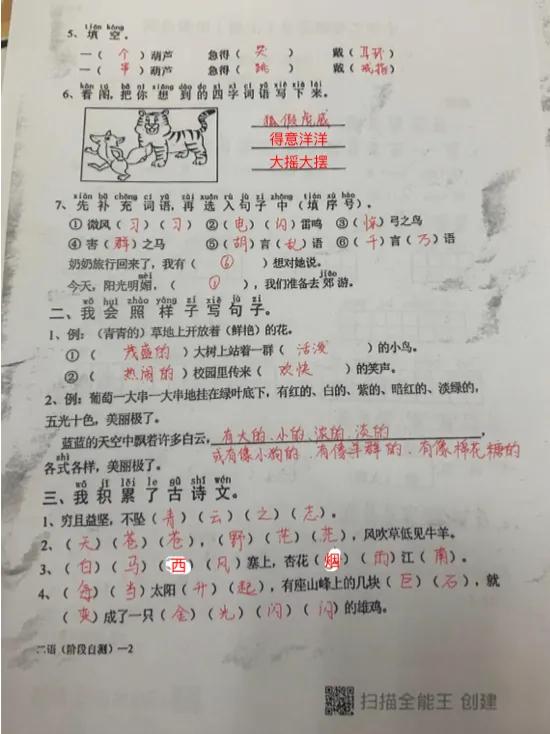 tián kòng
5、填 空。
一（ 个 ）葫芦 急得（ 哭 ） 戴（ 耳环 ）
一（ 串 ）葫芦 急得（ 跳 ） 戴（ 戒指 ）
kàn tú bǎ nǐ xiǎng dào de sì zì cí yǔ xiě xià lái
6、看 图，把 你 想 到 的 四 字 词 语 写 下 来。
狐假虎威
得意洋洋
大摇大摆
xiān bǔ chōng cí yǔ zài xuǎn rù jù zi zhōng tián xù hào
7、先 补 充 词 语，再 选 入 句 子 中（填 序 号）。
①微风（ 习 ）（ 习 ） ②（ 电 ）（ 闪 ）雷鸣 ③（ 惊 ）弓之鸟
④害（ 群 ）之马 ⑤（ 胡 ）言（ 乱 ）语 ⑥（ 千 ）言（ 万 ）语
奶奶旅行回来了，我有（ ⑥ ）想对她说。
mèi jiāo
今天，阳光明媚，（ ① ），我们准备去郊游。
wǒ huì zhào yàng zi xiě jù zi
二、我 会 照 样 子 写 句 子。
1、例：（青青的）草地上开放着（鲜艳）的花。
①（ 茂盛的 ）大树上站着一群（ 活泼 ）的小鸟。
②（ 热闹的 ）校园里传来（ 欢快 ）的笑声。
2、例：葡萄一大串一大串地挂在绿叶底下，有红的、白的、紫的、暗红的、淡绿的，
五光十色，美丽极了。
蓝蓝的天空中飘着许多白云，有大的、小的、浓的、淡的
或有像小狗的、有像羊群的、有像棉花糖的
shì
各式各样，美丽极了。
wǒ jī lěi le gǔ shī wén
三、我 积 累 了 古 诗 文。
1、穷且益坚，不坠（ 青 ）（ 云 ）（ 之 ）（ 志 ）。
2、（ 天 ）（ 苍 ）（ 苍 ），（ 野 ）（ 茫 ）（ 茫 ），风吹草低见牛羊。
3、（ 白 ）（ 马 ）（ 西 ）（ 风 ）塞上，杏花（ 烟 ）（ 雨 ）江（ 南 ）。
4、（ 每 ）（ 当 ）太阳（ 升 ）（ 起 ），有座山峰上的几块（ 巨 ）（ 石 ），就
（ 变 ）成了一只（ 金 ）（ 光 ）（ 闪 ）（ 闪 ）的雄鸡。
二语（阶段自测）—2
扫描全能王 创建